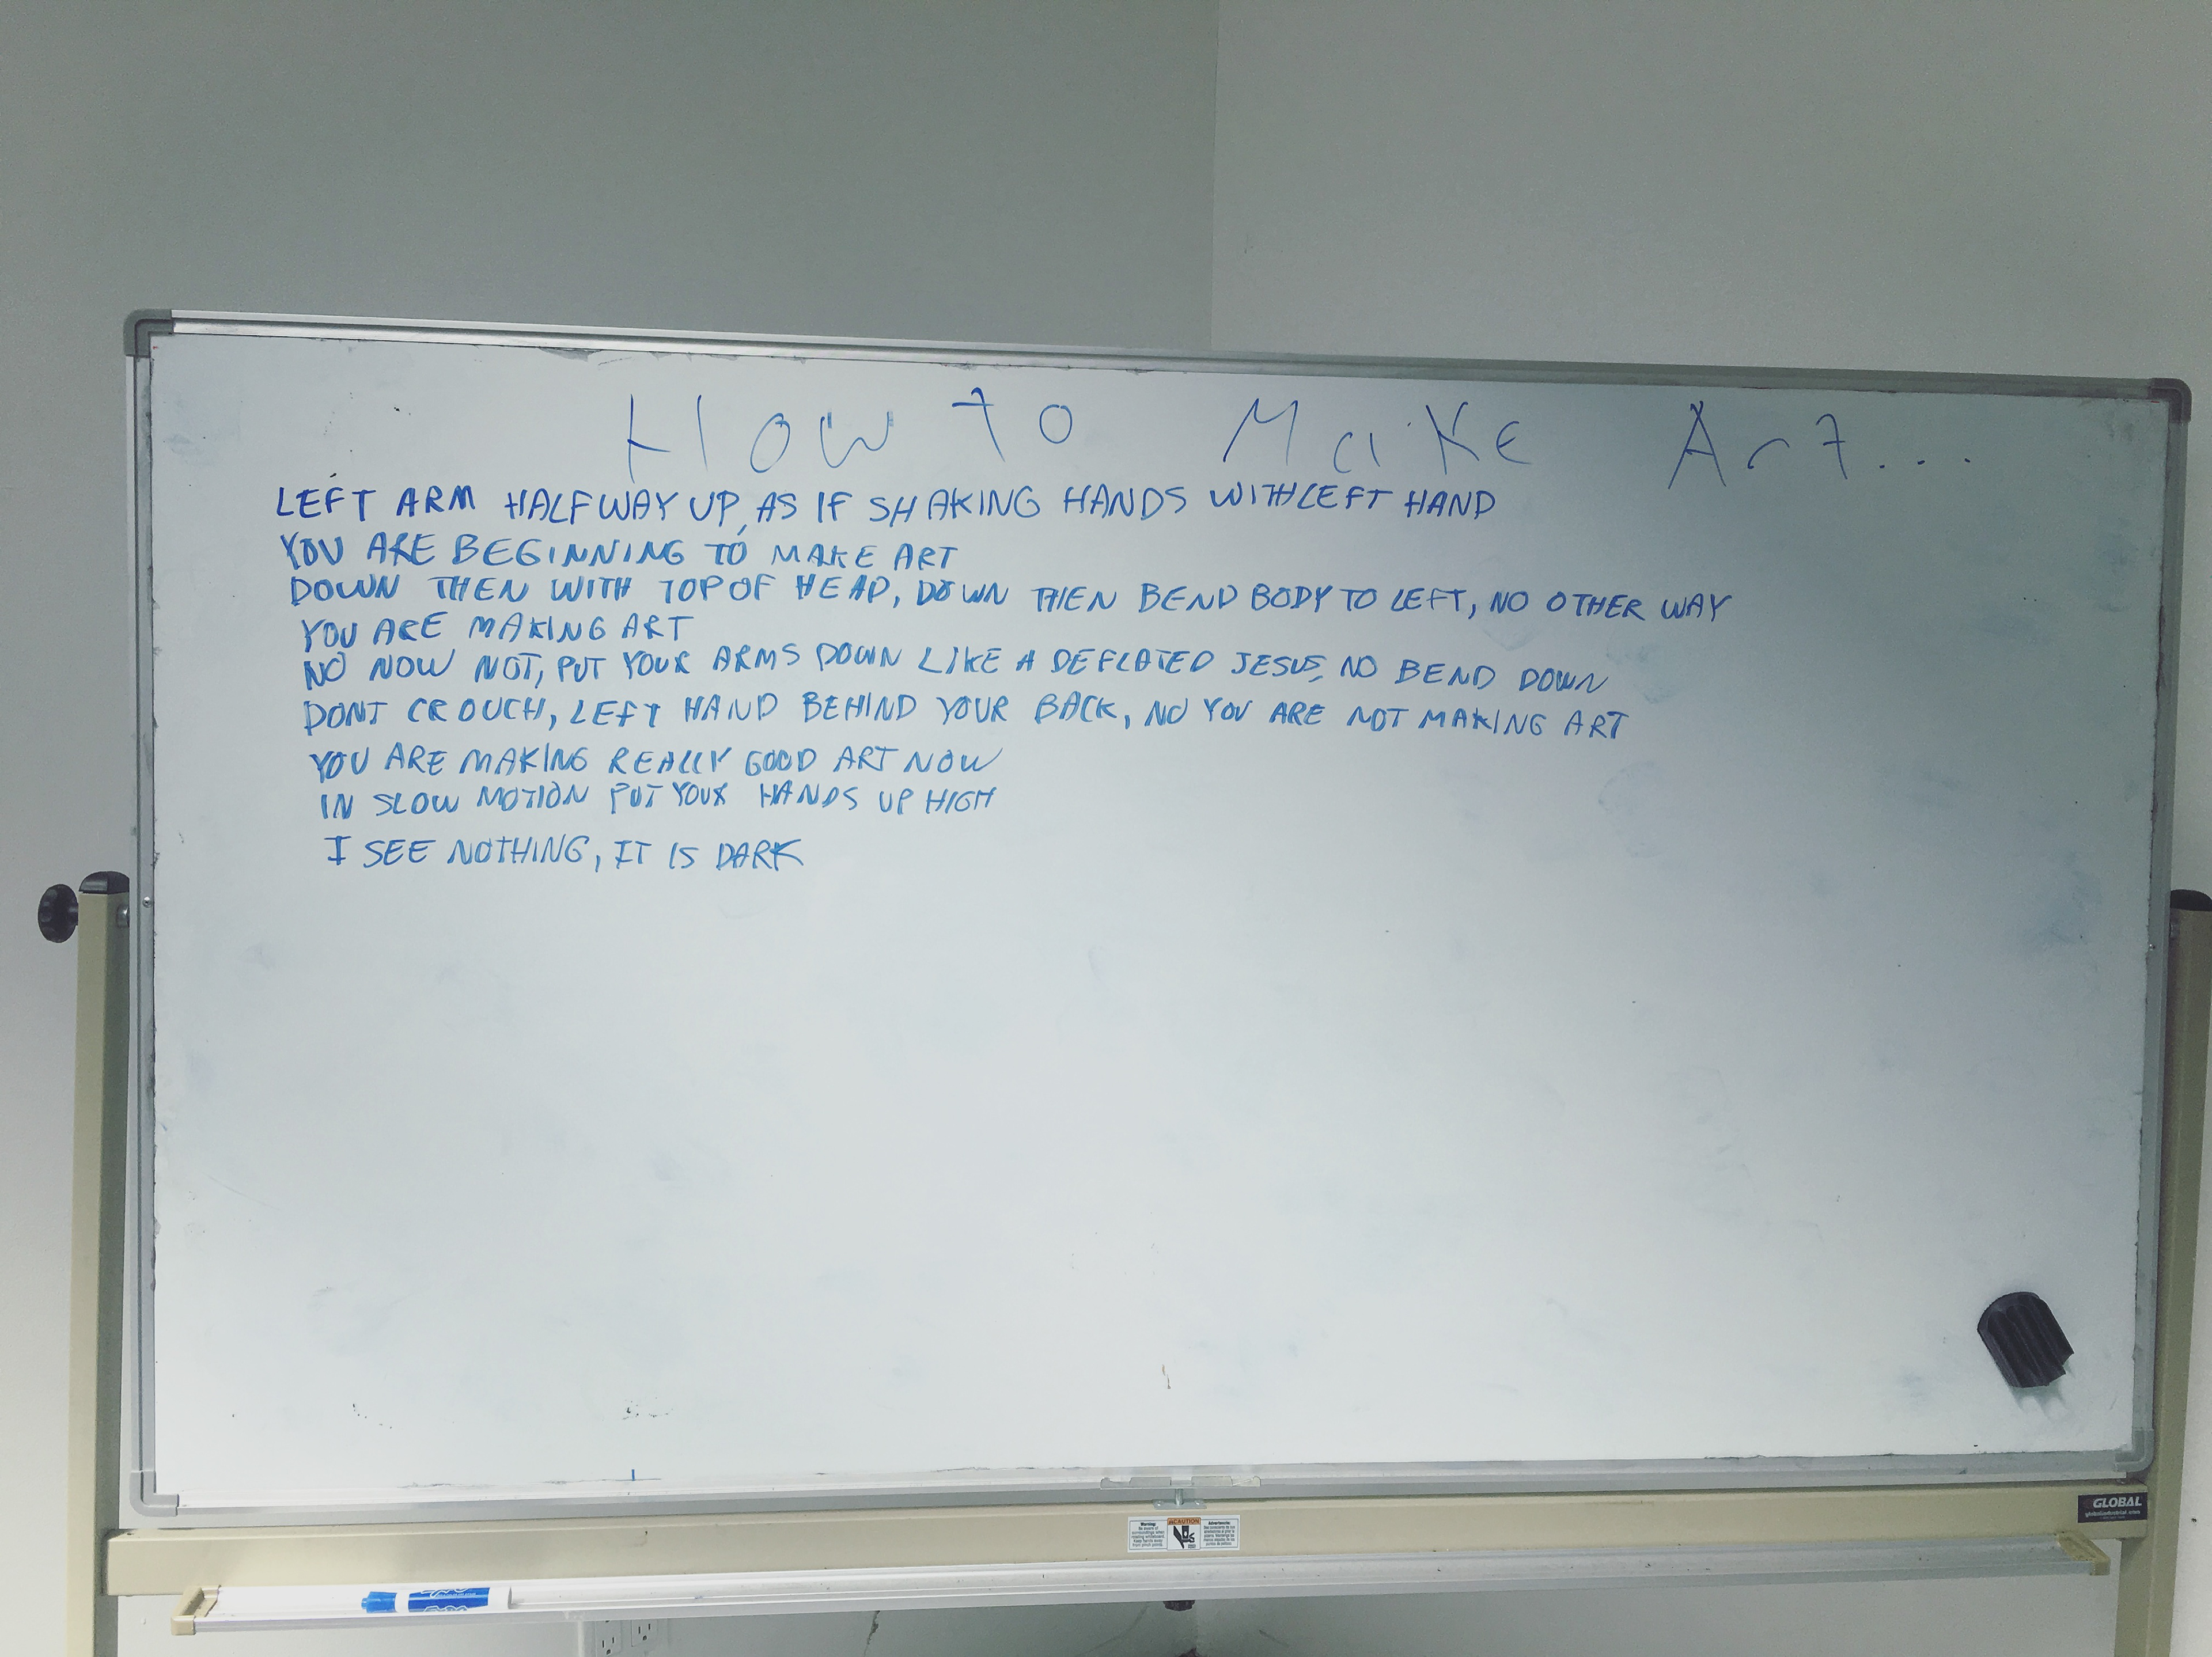 How To Make Art...
LEFT ARM HALFWAY UP, AS IF SHAKING HANDS WITH LEFT HAND
YOU ARE BEGINNING TO MAKE ART
DOWN THEN WITH TOP OF HEAD, DOWN THEN BEND BODY TO LEFT, NO OTHER WAY
YOU ARE MAKING ART
NO NOW NOT, PUT YOUR ARMS DOWN LIKE A DEFLATED JESUS, NO BEND DOWN
DONT CROUCH, LEFT HAND BEHIND YOUR BACK, NO YOU ARE NOT MAKING ART
YOU ARE MAKING REALLY GOOD ART NOW
IN SLOW MOTION PUT YOUR HANDS UP HIGH
I SEE NOTHING, IT IS DARK
GLOBAL
Warning:
CAUTION